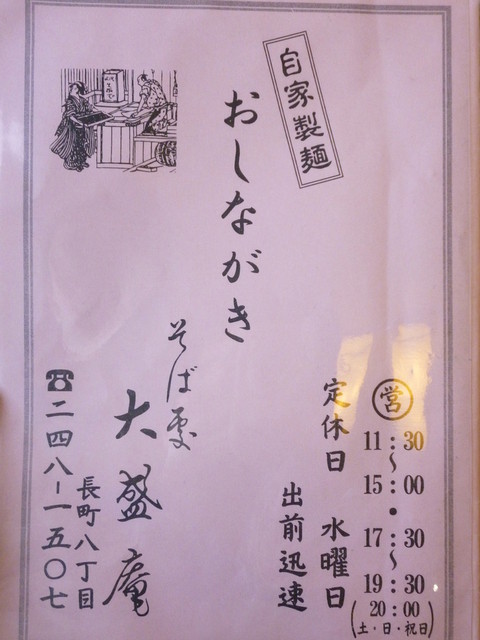 自家製麺
おしながき
㊂営
11:30
〜
15:00
・
17:30
〜
19:30
(20:00
土・日・祝日)
定休日 水曜日
出前迅速
そば処
大盛庵
長町八丁目
☎二四八-一五〇七